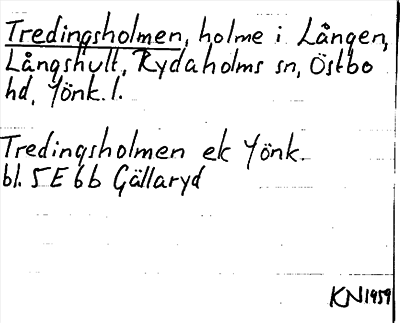 Tredingsholmen, holme i Lången,
Långshult, Rydaholms sn, Östbo
hd, Jönk. l.
Tredingsholmen ek Jönk.
bl. 5E 6b Gällaryd
KN1959